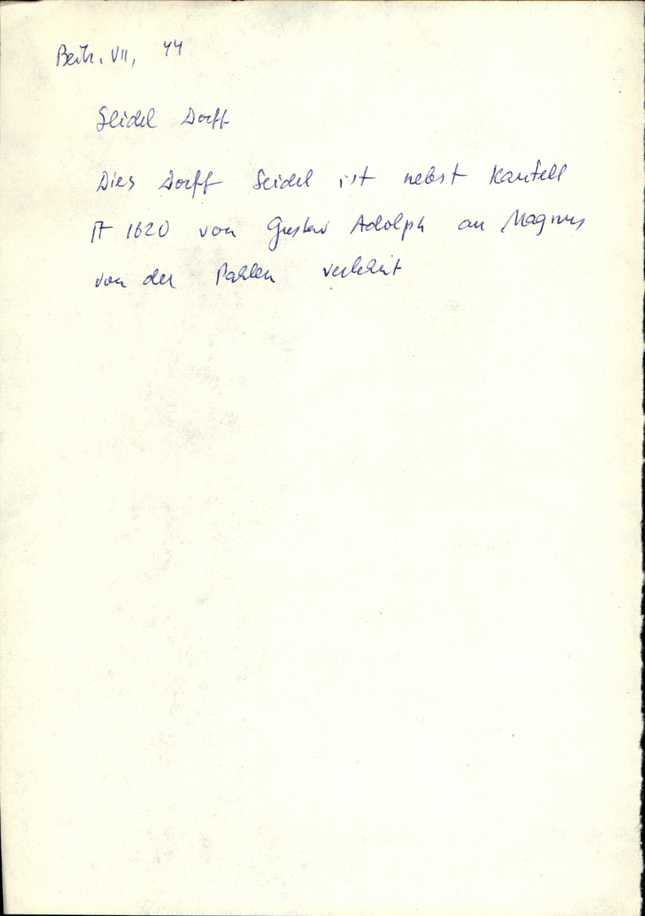 Beitr. VII, 44
Seidel Dorff
Dies Dorff Seidel ist nebst Kantell
A 1620 von Gustav Adolph an Magnus
von der Pahlen verlehnt